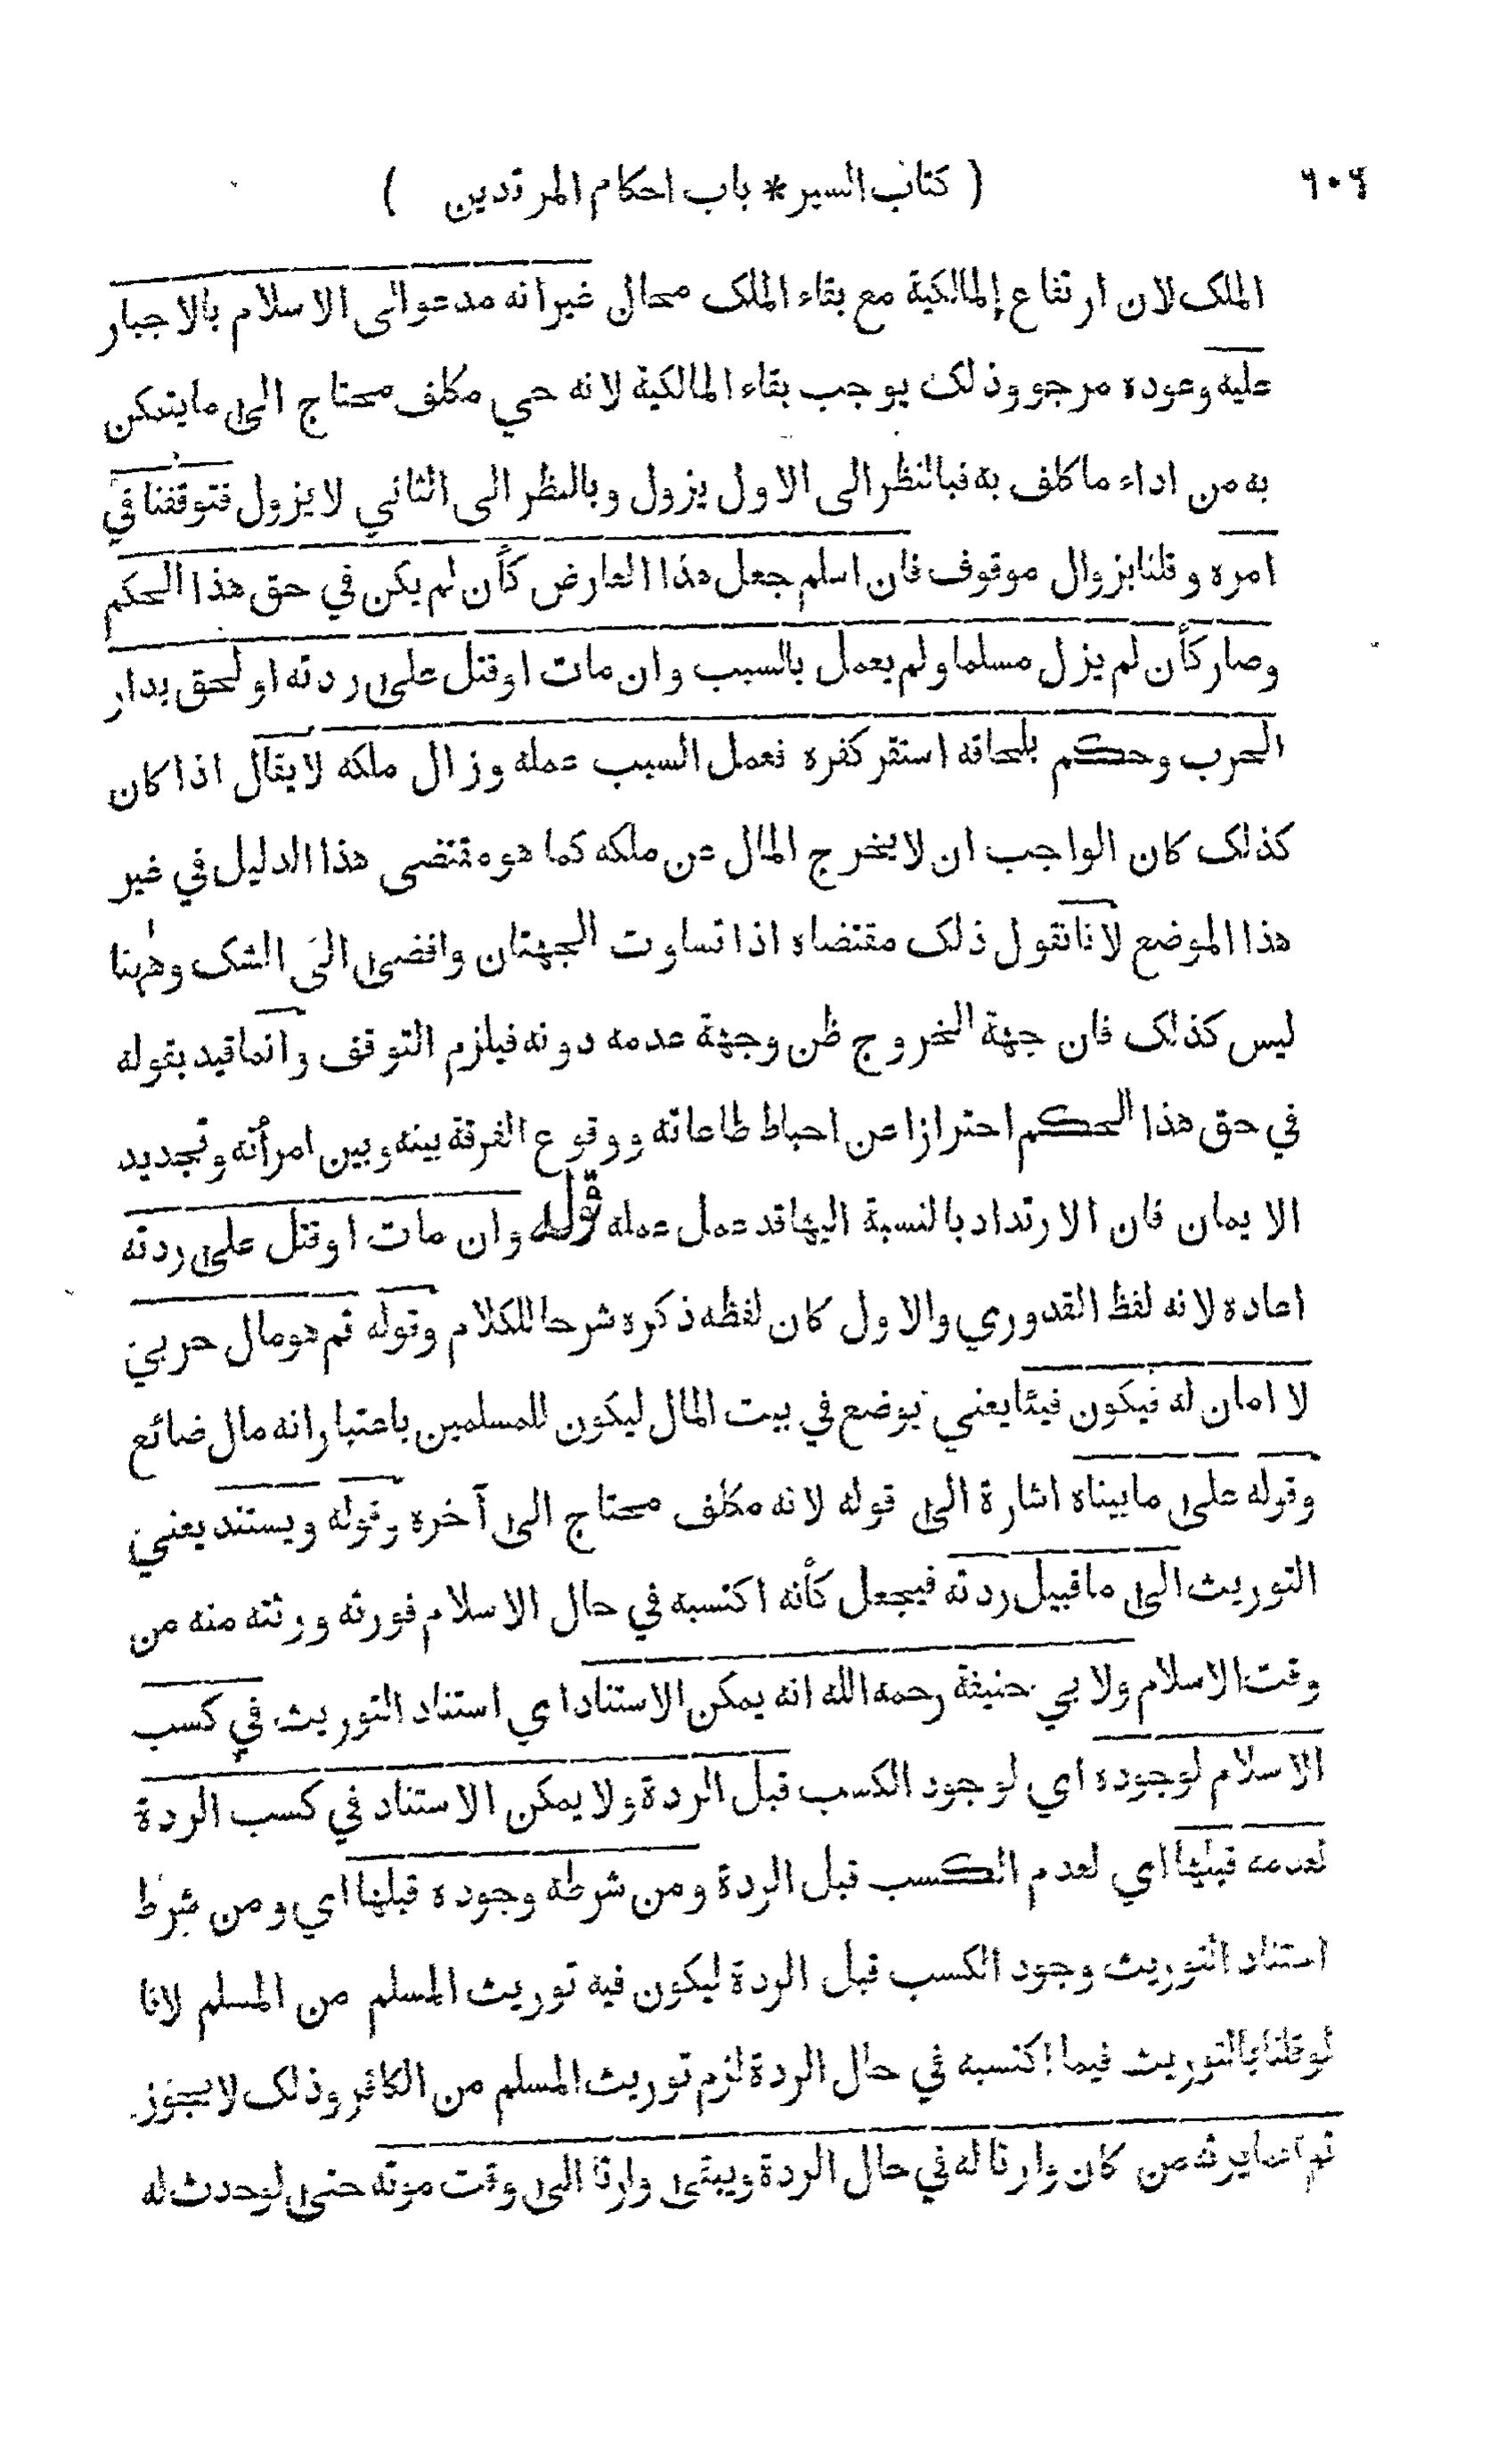 ٦٠٦
( كتاب السير * باب احكام المرتدين )
الملك لان ارتفاع المالكية مع بقاء الملك محال غيرانه مدعو الى الاسلام بالاجبار
عليه وعوده مرجو وذلك يوجب بقاء المالكية لانه حي مكلف محتاج الى ما يتمكن
به من اداء ما كلف به فبالنظر الى الاول يزول وبالنظر الى الثاني لا يزول فتوقفنا في
امره وقلنا بزوال موقوف فان اسلم جعل هذا العارض كأن لم يكن في حق هذا الحكم
وصار كأن لم يزل مسلما ولم يعمل بالسبب وان مات او قتل على ردته او لحق بدار
الحرب وحكم بلحاقه استقر كفره فعمل السبب عمله وزال ملكه لا يقال اذا كان
كذلك كان الواجب ان لا يخرج المال عن ملكه كما هو مقتضى هذا الدليل في غير
هذا الموضع لانا نقول ذلك مقتضاه اذا تساوت الجهتان وافضى الى الشك وههنا
ليس كذلك فان جهة الخروج ظن وجهة عدمه دونه فيلزم التوقف وانما قيد بقوله
في حق هذا الحكم احترازا عن احباط طاعاته ووقوع الفرقة بينه وبين امرأته وتجديد
الايمان فان الارتداد بالنسبة اليها قد عمل عمله قوله وان مات او قتل على ردته
اعاده لانه لفظ القدوري والاول كان لفظه ذكره شرحا للكلام وقوله ثم هو مال حربي
لا امان له فيكون فيئا يعني يوضع في بيت المال ليكون للمسلمين باعتبار انه مال ضائع
وقوله على ما بيناه اشارة الى قوله لانه مكلف محتاج الى آخره وقوله ويستند يعني
التوريث الى ما قبيل ردته فيجعل كأنه اكتسبه في حال الاسلام فورثه ورثته منه من
وقت الاسلام ولابي حنيفة رحمه الله انه يمكن الاستناد اي استناد التوريث في كسب
الاسلام لوجوده اي لوجود الكسب قبل الردة ولا يمكن الاستناد في كسب الردة
لعدمه قبلها اي لعدم الكسب قبل الردة ومن شرطه وجوده قبلها اي ومن شرط
استناد التوريث وجود الكسب قبل الردة ليكون فيه توريث المسلم من المسلم لانا
لو قلنا بالتوريث فيما اكتسبه في حال الردة لزم توريث المسلم من الكافر وذلك لا يجوز
ثم انما يرثه من كان وارثا له في حال الردة ويبقى وارثا الى وقت موته حتى لو حدث له